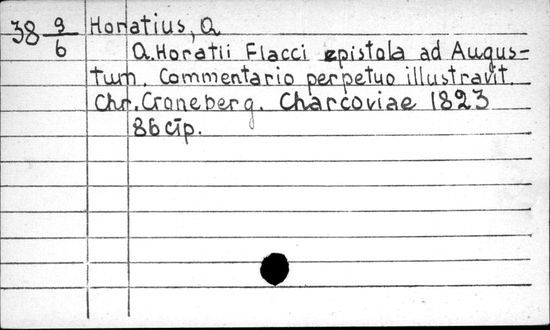 38 9/6 Horatius, Q
Q. Horatii Flacci epistola ad Augus-
tum. Commentario perpetuo illustravit.
Chr. Croneberg. Charcoviae 1823
86 стр.